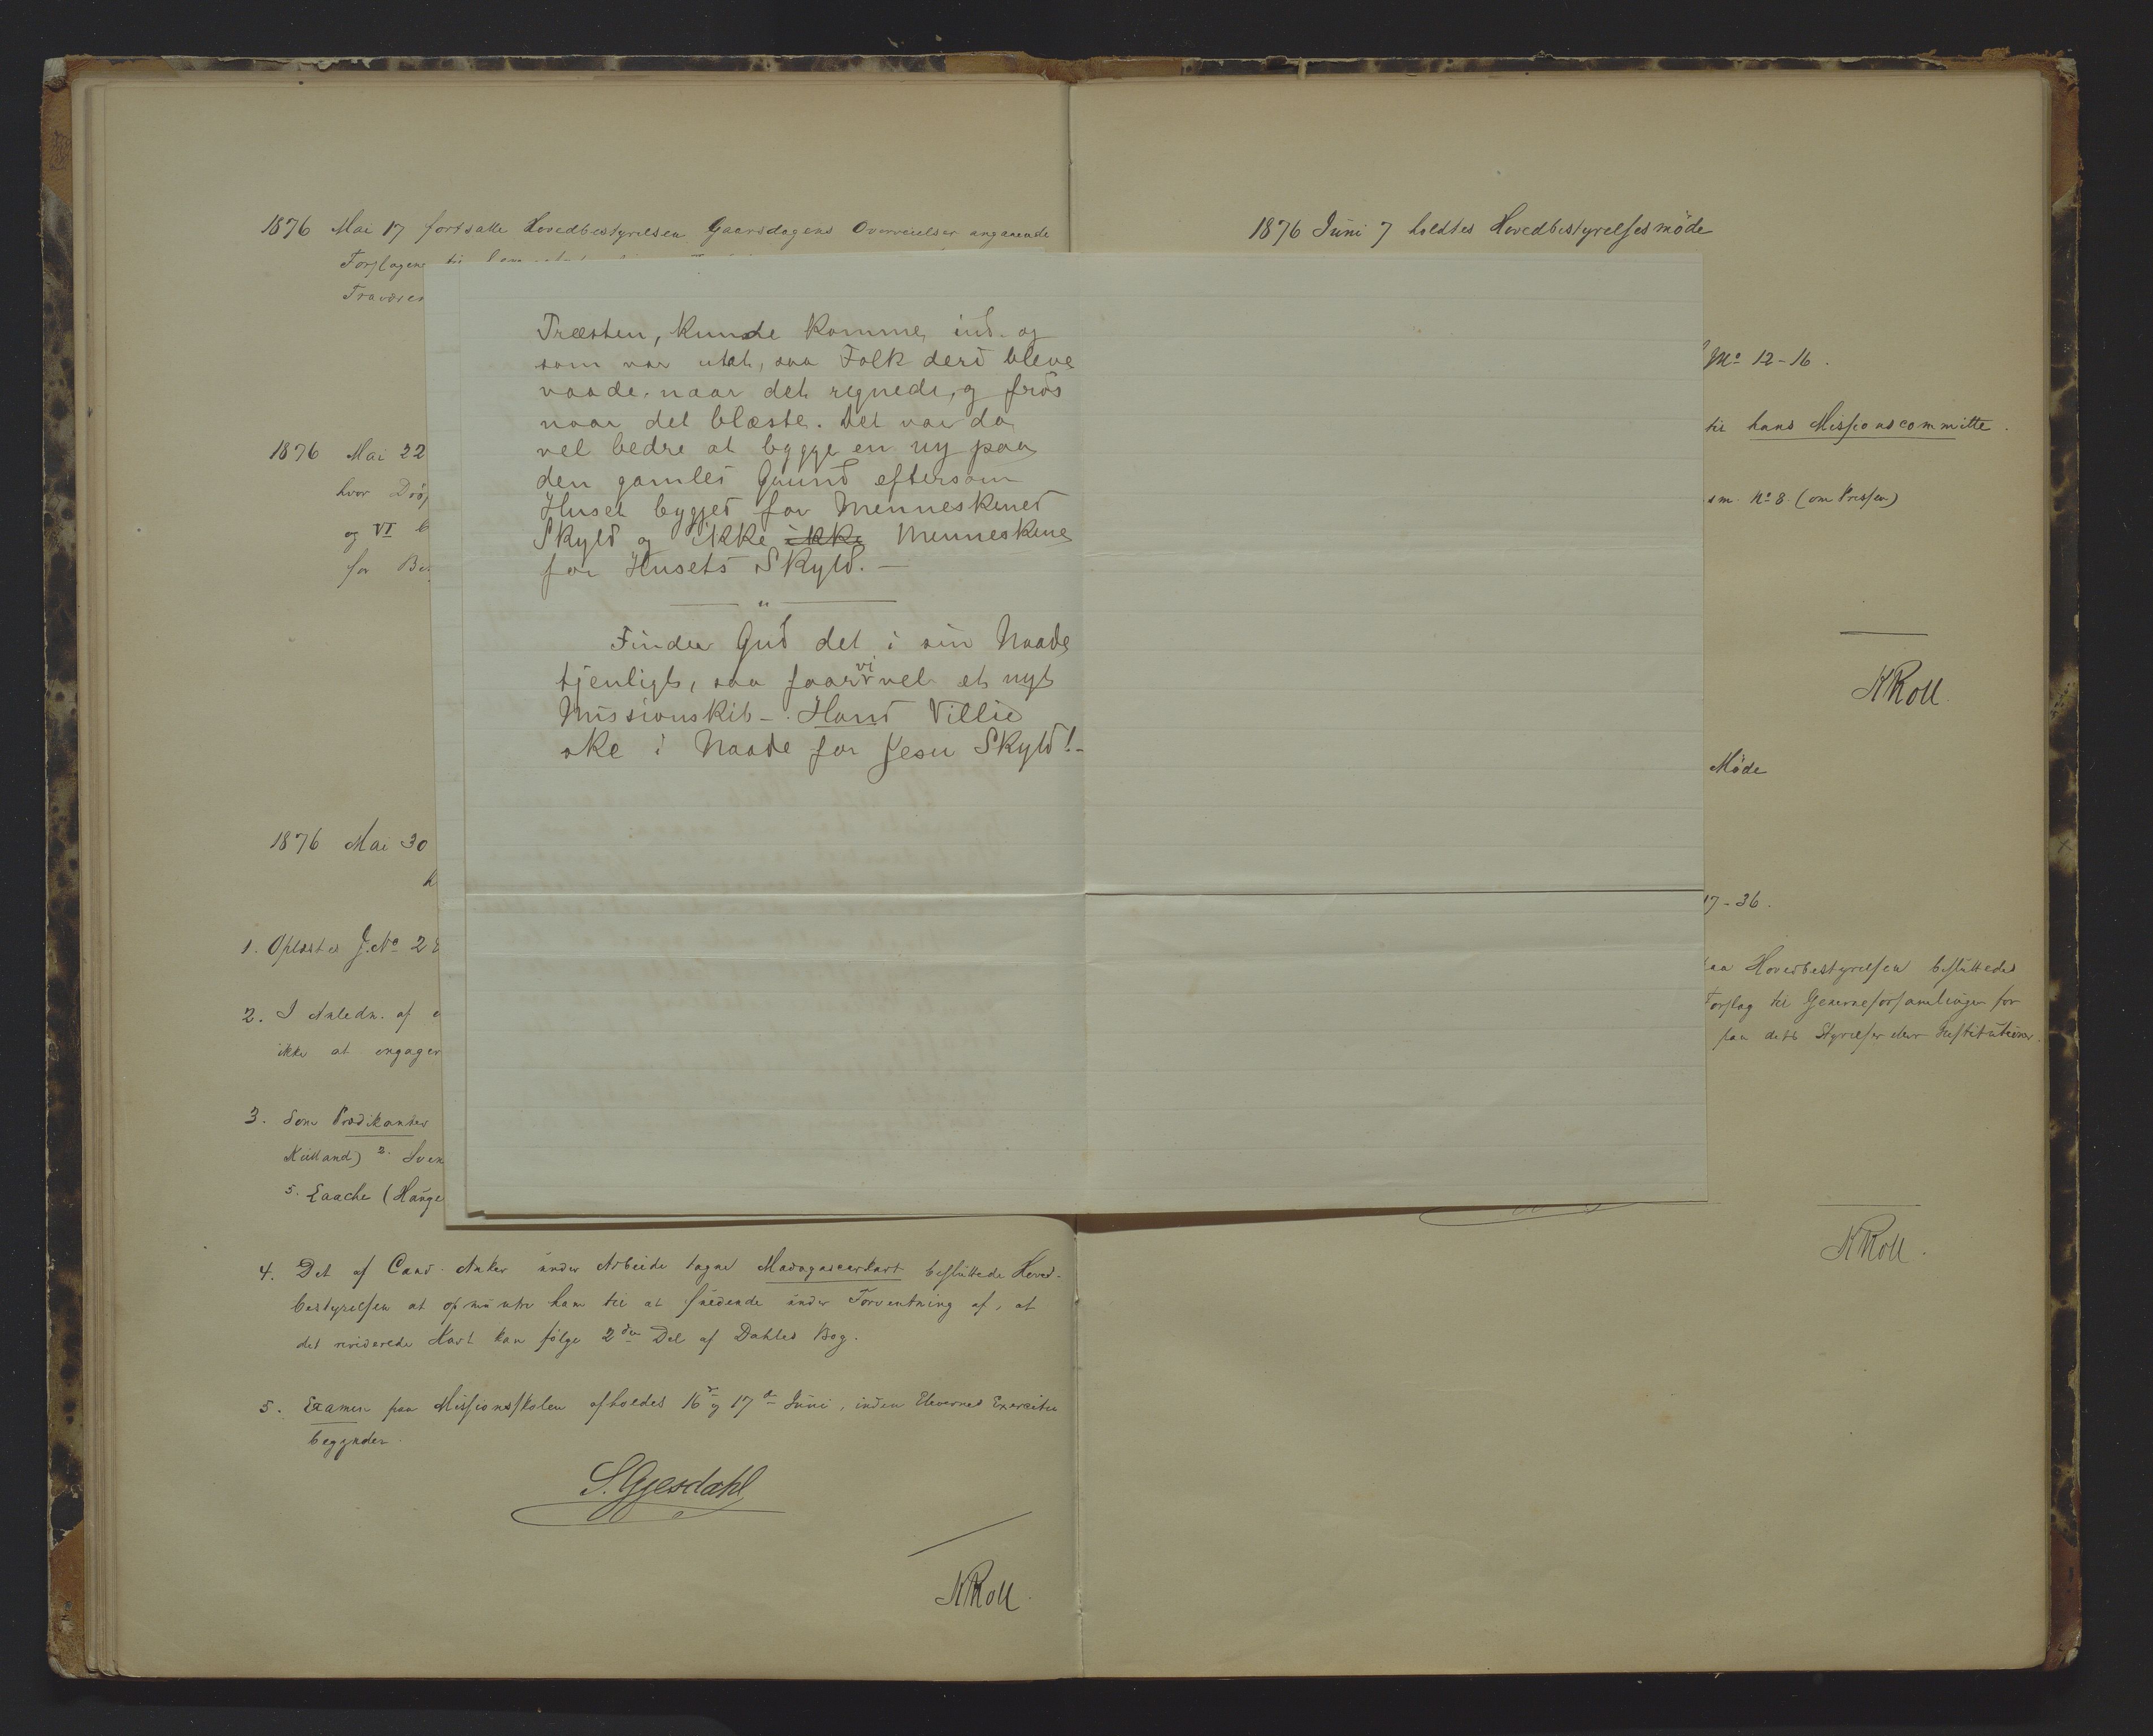 1876 Mai 17 fortsatte Hovedbestyrelsen Gaarsdagens Overveielser angaaende
Forslagene til
1876 Mai 22
hvor
og VI
for
1876 Mai 30
1. Oplæstes J.No 2
2. I Anledn. af
ikke at engager
3. Som Prædikanter
Kielland) 2.
5. Laache (Hauge
4. Det af Cand. Anker under Arbeide tagne Madagascarkart besluttede Hoved-
bestyrelsen at opmuntre ham til at fuldende under Forventning af, at
det reviderede Kart kan følge 2den Del af Dahles Bog.
5. Examen paa Missionsskolen afholdes 16de og 17de Juni, inden Elevernes Exercitie
begynder.
S. Gjesdahl
KRoll.
Træsten, kunde komme ind og
som var utæt, saa Folk deri bleve
vaade, naar det regnede, og frøs
naar det blæste. Det var da
vel bedre at bygge en ny paa
den gamles Grund eftersom
Huset bygges for Menneskenes
Skyld og ikke ikke Menneskene
for Husets Skyld. —
Finder Gud det i sin Naade
tjenligt, saa faar vi vel et nyt
Missionskib -. Hans Villie
ske i Naade for Jesu Skyld! -
1876 Juni 7 holdtes Hovedbestyrelsesmöde
No 12-16.
til hans Missionscommitte.
No 8. (om Pressen)
KRoll.
Möde
17-36.
Hovedbestyrelsen besluttedes
Forslag til Generalforsamlingen for
paa dets Styrelse eller Institutioner.
KRoll.